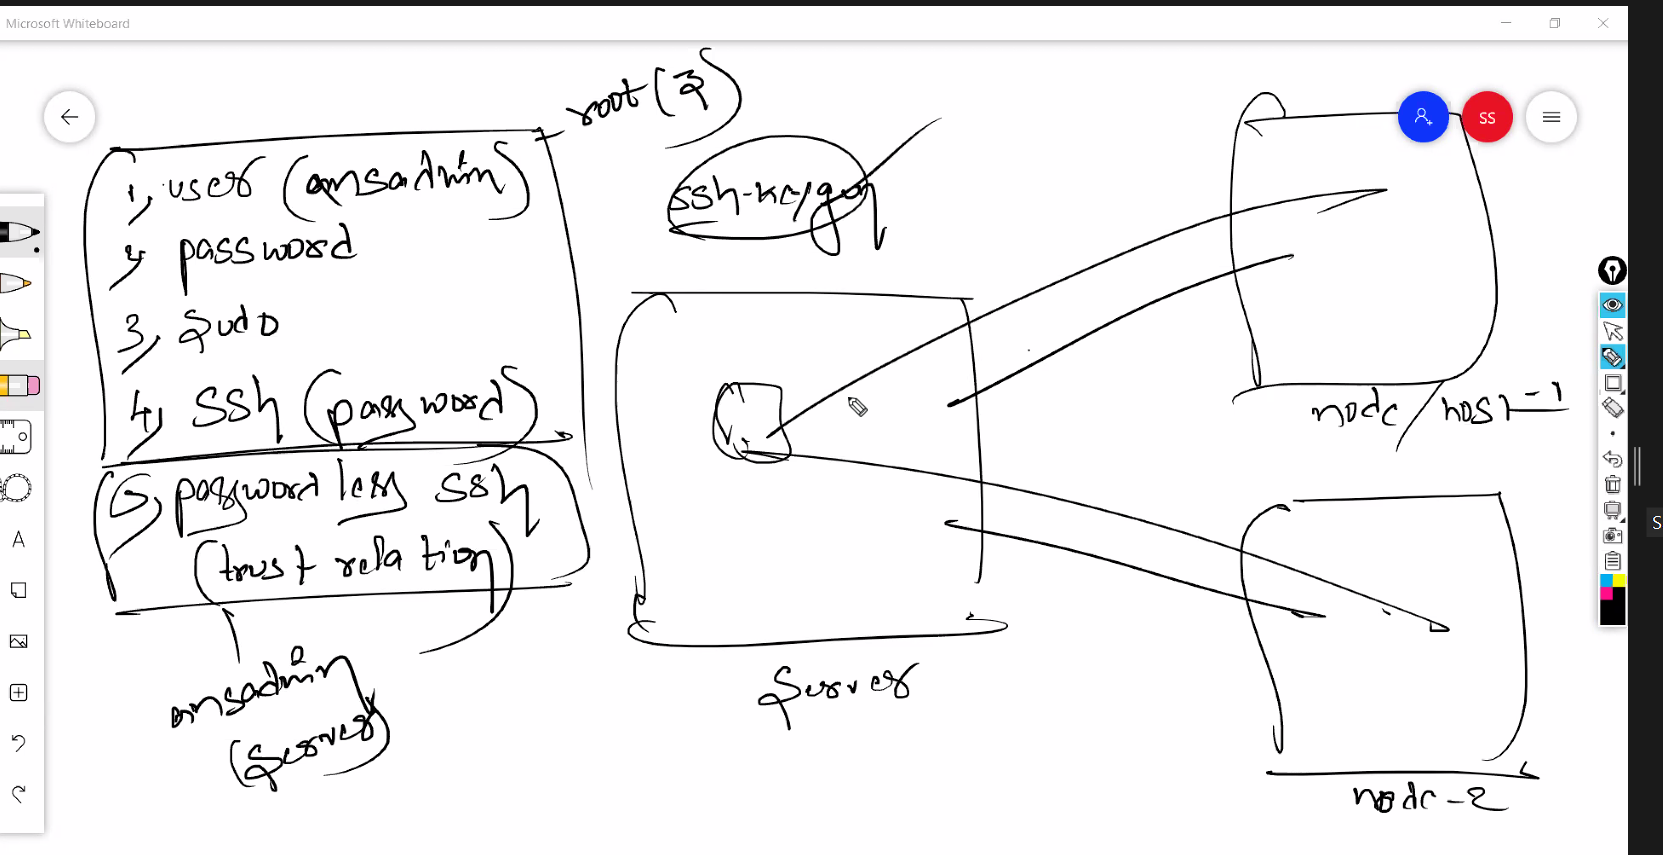 Microsoft Whiteboard
root (3)
SS
1, user (ansadmin)
2, password
3, sudo
4, ssh (password)
5, password less ssh
(trust relation)
ansadmin
(Server)
ssh-keygen
Server
node/host-1
node-2
A
S